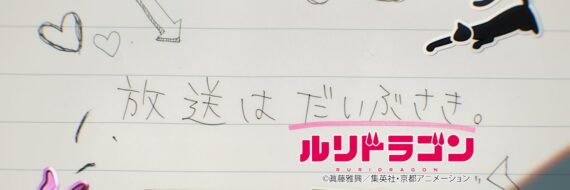 放送は だいぶさき。
ルリドラゴン
RURIDRAGON
©眞藤雅興／集英社・京都アニメーション